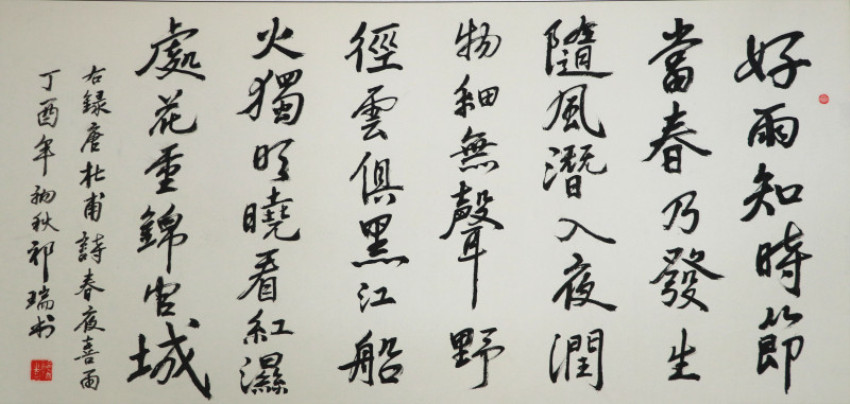 好雨知時節
當春乃發生
隨風潛入夜潤
物細無聲野
徑雲俱黑江船
火獨明曉看紅濕
處花重錦官城
右録唐杜甫詩春夜喜雨
丁酉年初秋祁瑞书